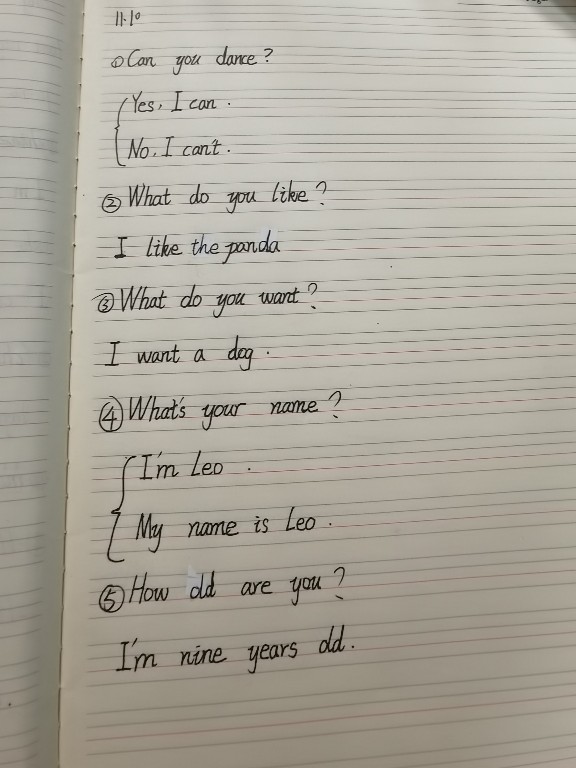 11.10
① Can you dance?
Yes, I can.
No, I can't.
② What do you like?
I like the panda
③ What do you want?
I want a dog.
④ What's your name?
I'm Leo.
My name is Leo.
⑤ How old are you?
I'm nine years old.